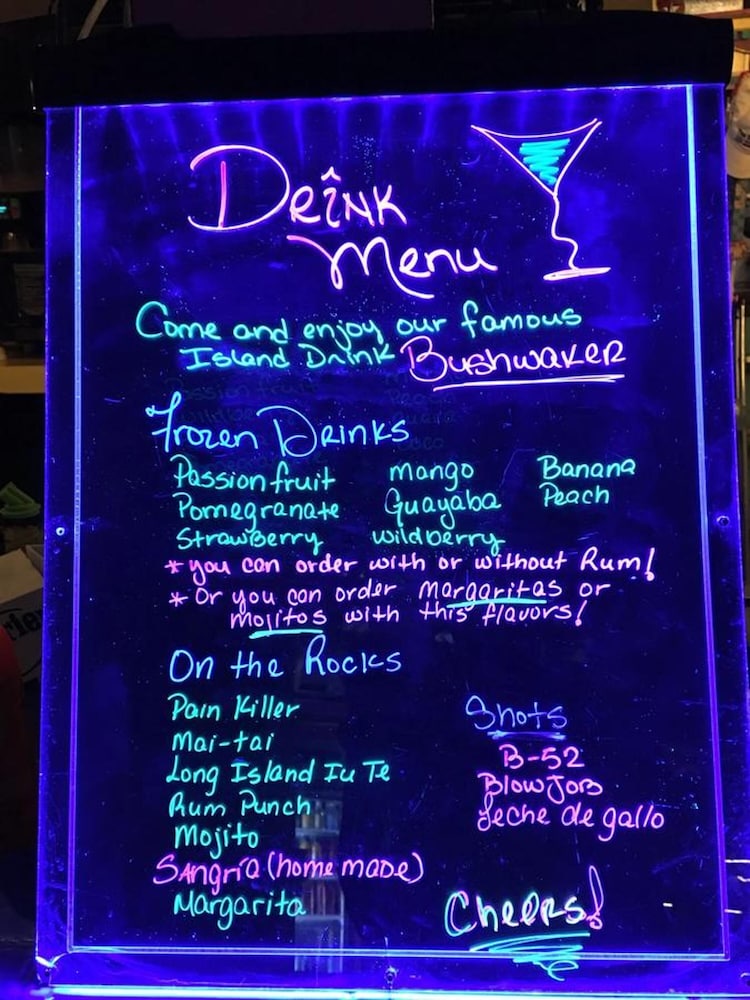 Drînk
Menu
Come and enjoy our famous
Island Drink Bushwaker
Frozen Drinks
Passion fruit mango Banana
Pomegranate Guayaba Peach
Strawberry wildberry
* you can order with or without Rum!
* Or you can order margaritas or
mojitos with this flavors!
On the Rocks
Pain Killer
Mai-tai
Long Island Iu Te
Rum Punch
Mojito
Sangría (home made)
Margarita
Shots
B-52
Blow Job
Leche de gallo
Cheers!